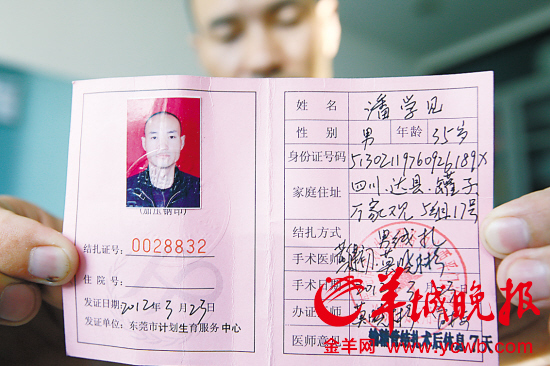 (加压钢印)
结扎证号: 0028832
住院号:
发证日期: 2012年3月23日
发证单位: 东莞市计划生育服务中心
姓名 潘学见
性别 男 年龄 35岁
身份证号码 51302119760926189X
家庭住址 四川.达县.罐子
万家坝5组17号
结扎方式 男结扎
手术医师
手术日期
办证
医师意见 输精管结扎术后休息7天
羊城晚报
金羊网 www.ycwb.com